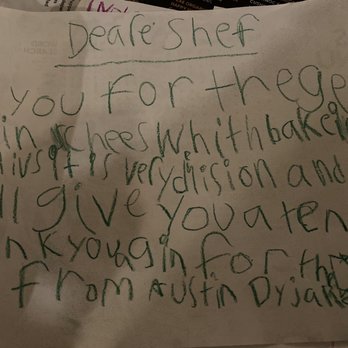 Deare Shef
you For thege
in chees Whith bake
it is very dision and
ll give you a ten
nk you agin for the
From Austin Dyjan